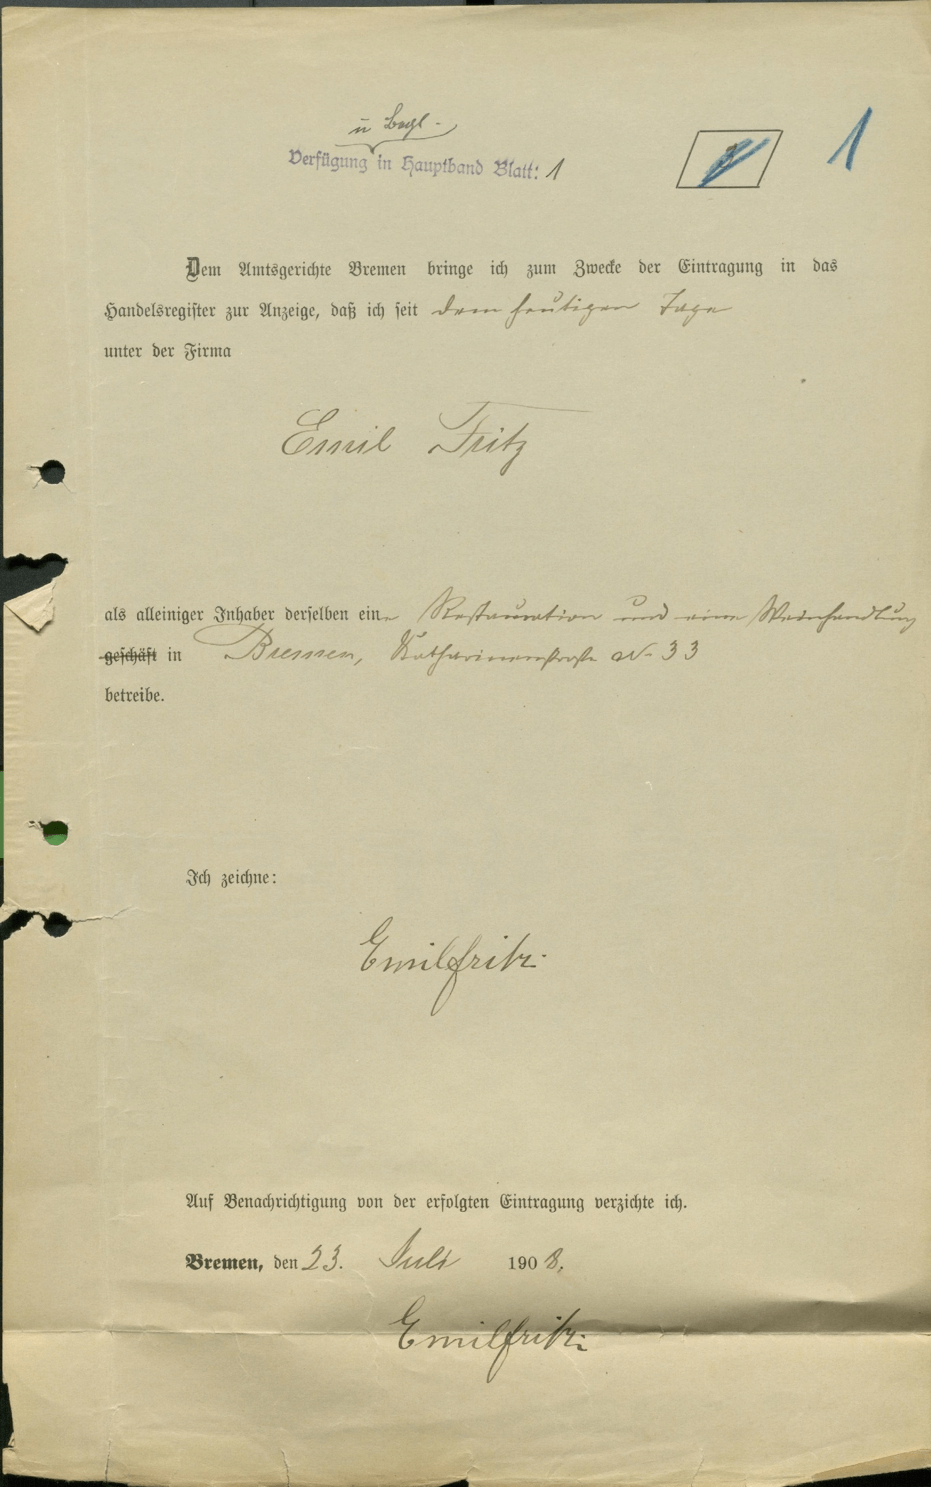 u Begl.
Verfügung in Hauptband Blatt: 1
1
Dem Amtsgerichte Bremen bringe ich zum Zwecke der Eintragung in das
Handelsregister zur Anzeige, daß ich seit dem heutigen Tage
unter der Firma
Emil Fritz
als alleiniger Inhaber derselben eine Restauration und eine Weinhandlung
geschäft in Bremen, Katharinenstraße No 33
betreibe.
Ich zeichne:
Emil Fritz.
Auf Benachrichtigung von der erfolgten Eintragung verzichte ich.
Bremen, den 23. Juli 1908.
Emil Fritz.